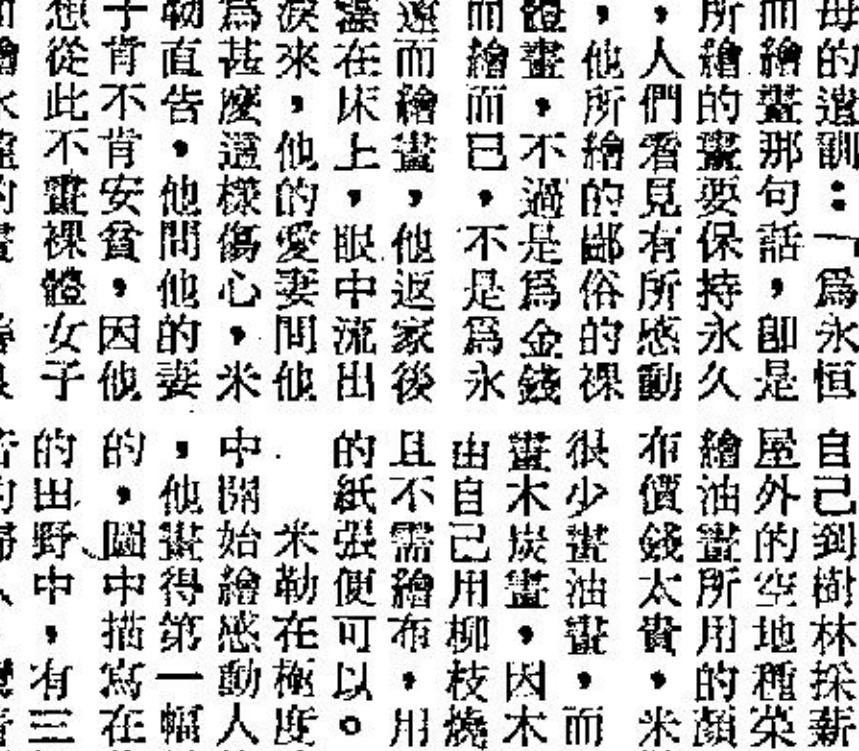 母的遺訓：「爲永恒
而繪畫那句話，卽是
所繪的畫要保持永久
，人們看見有所感動
，他所繪的鄙俗的裸
體畫，不過是爲金錢
而繪而已，不是爲永
遠而繪畫，他返家後
在床上，眼中流出
淚來，他的愛妻問他
爲甚麼這樣傷心，米
勒直告，他問他的妻
子肯不肯安貧，因他
想從此不畫裸體女子
自己到樹林採薪
屋外的空地種菜
繪油畫所用的顏
布價錢太貴，米
很少畫油畫，而
畫木炭畫，因木
由自己用柳枝燒
且不需繪布，用
的紙張便可以。
米勒在極度
中開始繪感動人
，他畫得第一幅
的，圖中描寫在
的田野中，有三